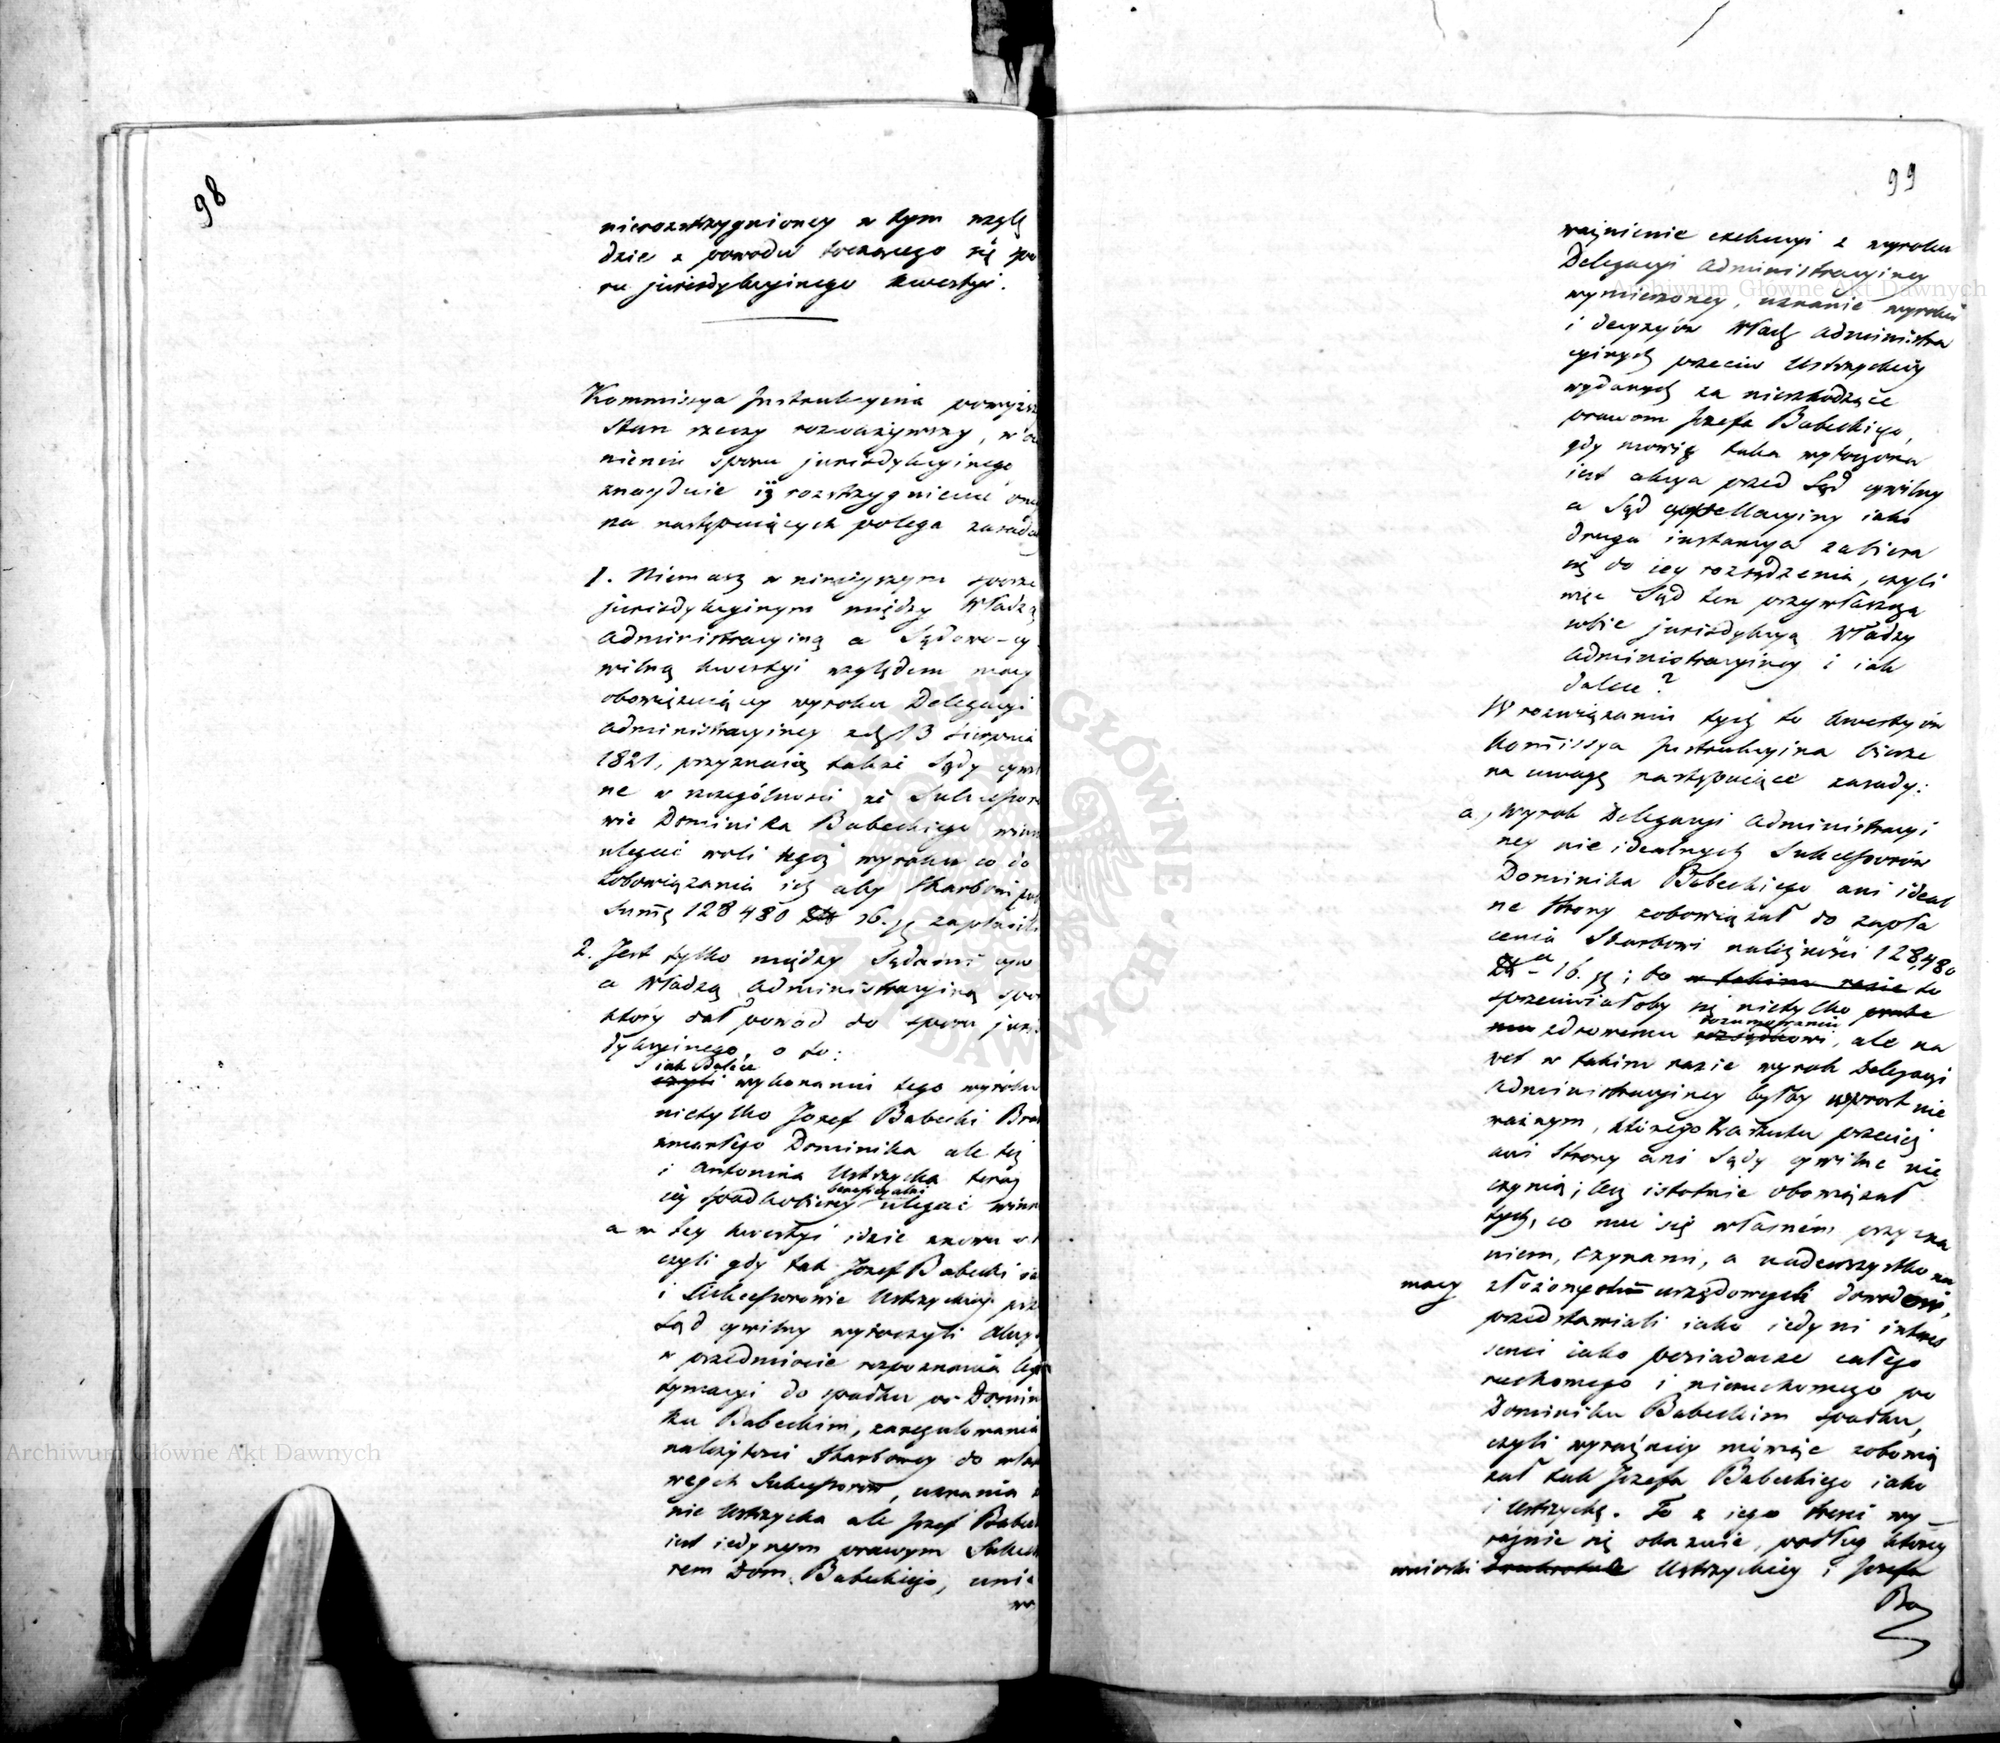 98
nierozstrzygnioney w tym wzglę
dzie z powodu toczącego się spo
ru jurisdykcyinego kwestyi.
Kommissya Instrukcyina powyższy
Stan rzeczy rozważywszy, w
nieniu sporu jurisdykcyinego
znayduie iż rozstrzygnienie
na następuiących polega zasada
1. Niemasz w ninieyszym sporze
jurisdykcyinym między Władzą
Administracyiną a Sądowo-cy
wilną kwestyi względem mocy
obowięzuiącey wyroku Delegacyi
Administracyiney z dn 13 Sierpnia
1821, przyznaią także Sądy cywil
ne w szczególności że Sukcessoro
wie Dominika Babeckiego winni
ulegać woli tegoż wyroku co do
zobowiązania ich aby Skarbowi
Summę 128480 Zł 16. gr zapłacili
2. Jest tylko między Sądami cyw
a Władzą Administracyiną spór
który dał powód do sporu juris
dykcyinego, o to:
iak dalece
czyli wykonaniu tego wyroku
nietylko Jozef Babecki Brat
zmarłego Dominika ale też
i Antonina Ustrzycka teraz
beneficyalni
iey spadkobiercy ulegać winni
a w tey kwestyi idzie znowu o t
czyli gdy tak Jozef Babecki ia
i Sukcessorowie Ustrzyckiey prz
Sąd cywilny wytoczyli akcyą
w przedmiocie rozpoznania legi
tymacyi do spadku po Domini
ku Babeckim, zaregulowania
należytości Skarbowey do właści
wych Sukcessorów, uznania
nie Ustrzycka ale Jozef Babecki
iest iedynym prawym Sukcesso
rem Dom. Babeckiego, unie
wa
99
ważnienie exekucyi z wyroku
Delegacyi Administracyiney
wymierzoney, uznanie wyroków
i decyzyów Władz Administra
cyinych przeciw Ustrzyckiey
wydanych za nieszkodzące
prawom Jozefa Babeckiego,
gdy mowię taka wytoczona
iest akcya przed Sąd cywilny
a Sąd appellacyiny iako
druga instancya zabiera
się do iey rozsądzenia, czyli
więc Sąd ten przywłaszcza
sobie jurisdykcyą Władzy
Administracyiney i iak
dalece?
W rozwiązaniu tych to kwestyów
Kommissya Instrukcyina bierze
na uwagę następuiące zasady:
a, Wyrok Delegacyi Administracyi
ney nie idealnych Sukcessorów
Dominika Babeckiego ani ideal
ne Strony zobowiązał do zapła
cenia Skarbowi należności 128,480
Zł 16. gr; bo w takim razie to
sprzeciwiałoby się nietylko
zdrowemu rozsądkowi, ale na
rozumowaniu
wet w takim razie wyrok Delegacyi
Administracyiney byłby wprost nie
ważnym, którego zarzutu przecież
ani Strony ani Sądy cywilne nie
czynią; lecz istotnie obowiązał
tych, co mu się własném przyzna
niem, czynami, a nadewszystko na
mocy złożonych urzędowych dowodów,
przedstawiali iako iedyni interes
senci iako posiadacze całego
ruchomego i nieruchomego po
Dominiku Babeckim spadku,
czyli wyraźniey mówiąc zobowią
zał tak Jozefa Babeckiego iako
i Ustrzycką. To z iego treści wy
raźnie się okazuie, podług którey
wnioski Ustrzyckiey i Jozefa
Ba
Archiwum Główne Akt Dawnych
Archiwum Główne Akt Dawnych